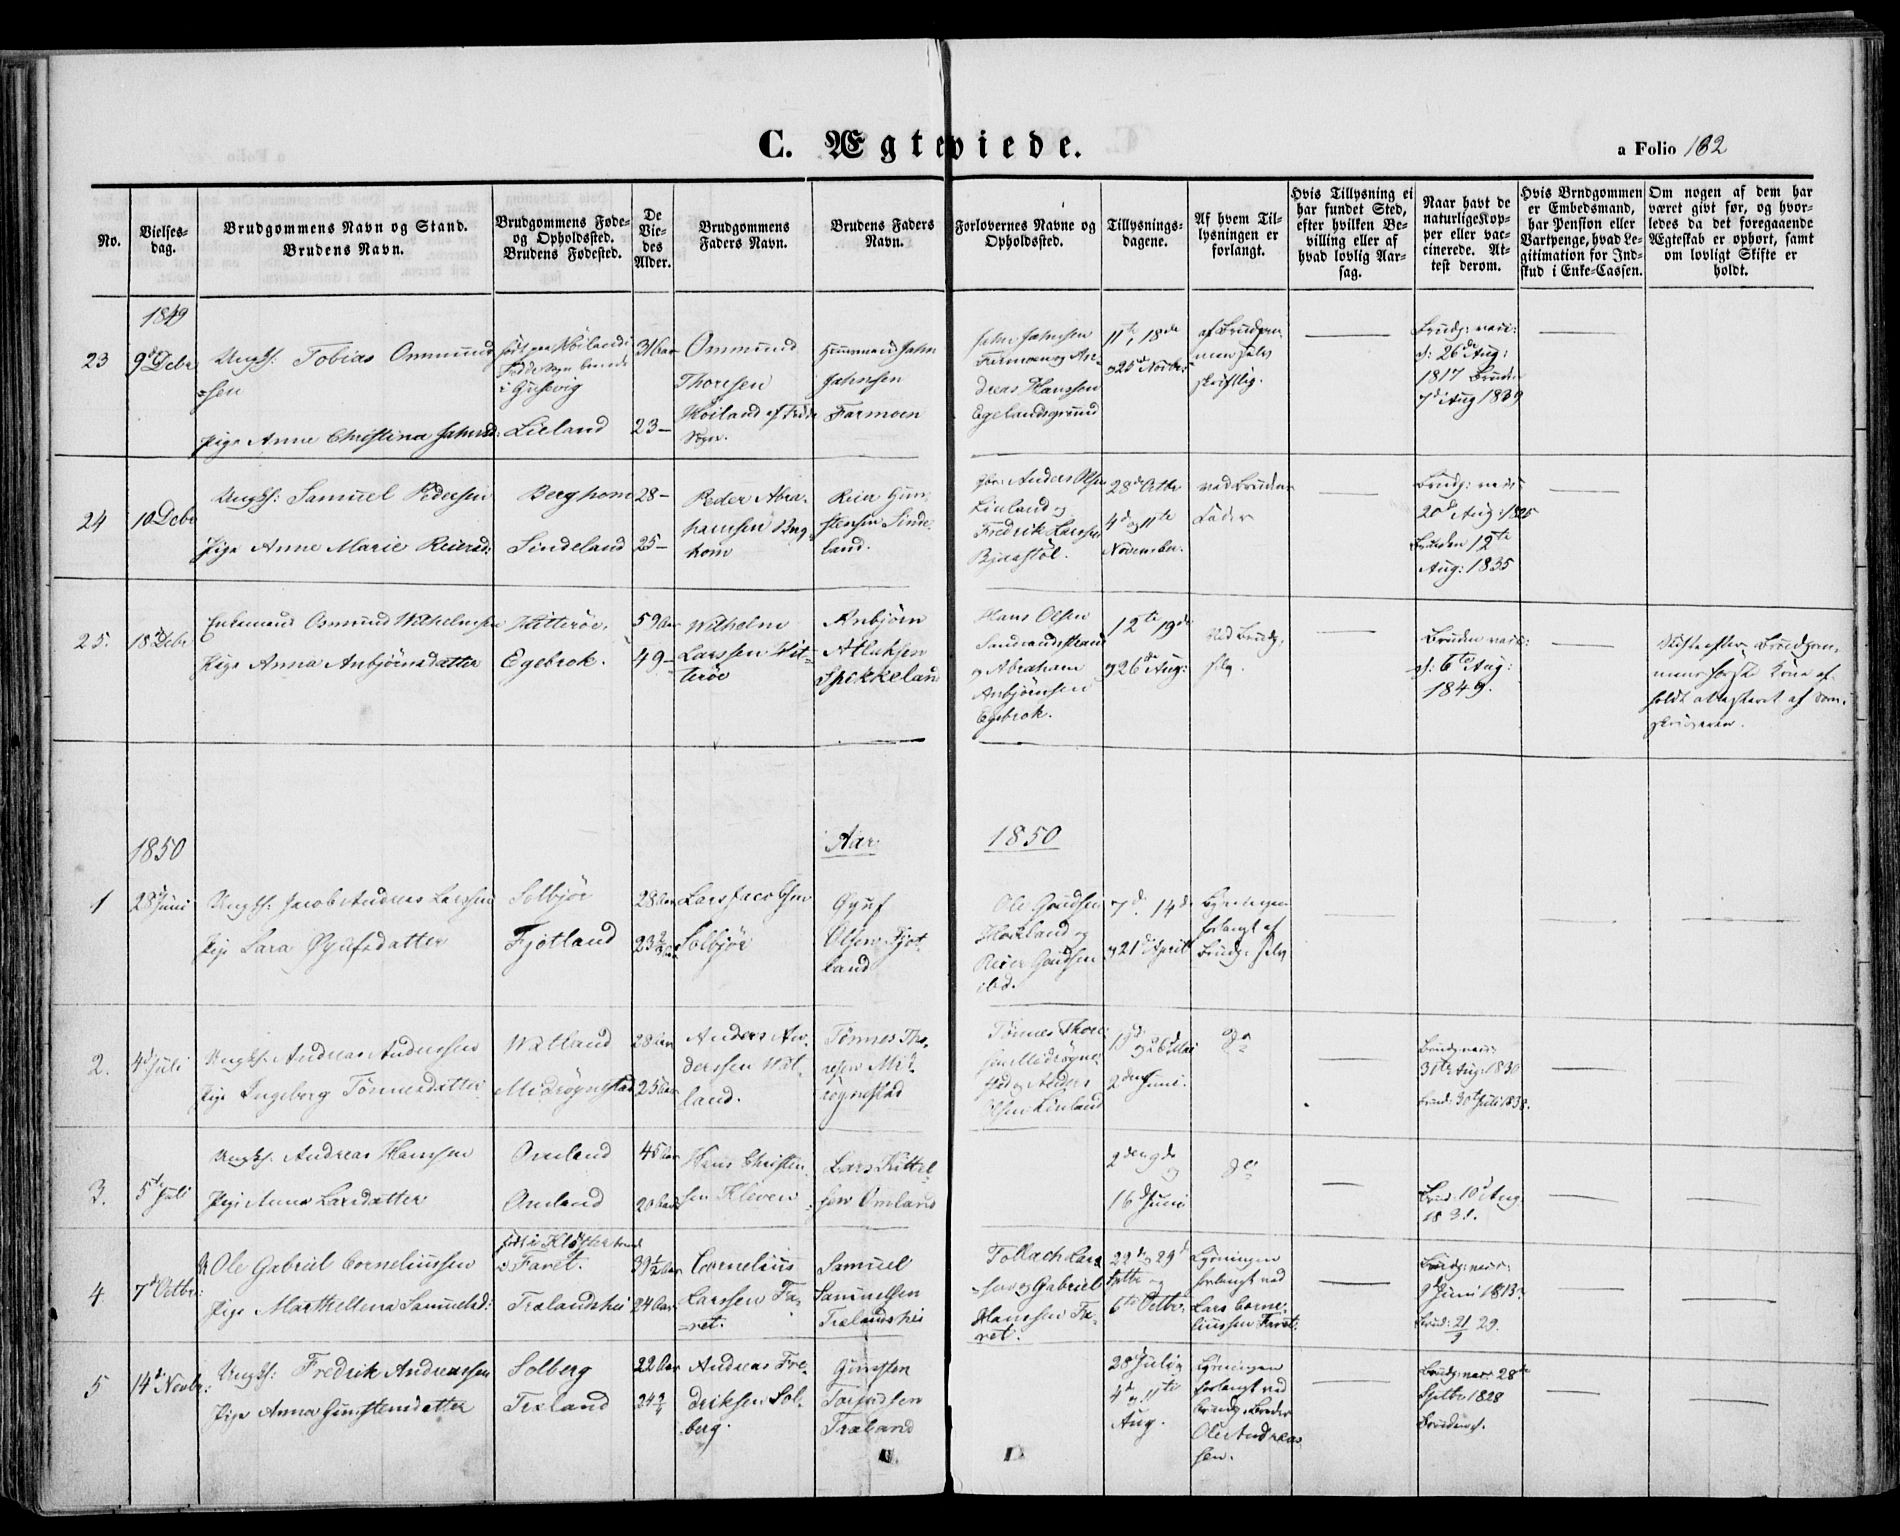 C. Ægteviede.
a Folio 182
No.
Vielses-
dag.
Brudgommens Navn og Stand.
Brudens Navn.
Brudgommens Føde-
og Opholdssted.
Brudens Fødested.
De
Vie-
des
Alder.
Brudgommens
Faders Navn.
Brudens Faders
Navn.
Forlovernes Navne og
Opholdssted.
Tillysnings-
dagene.
Af hvem Til-
lysningen er
forlangt.
Hvis Tillysning ei
har fundet Sted,
efter hvilken Be-
villing eller af
hvad lovlig Aar-
sag.
Naar havt de
naturlige Kop-
per eller vac-
cinerede. At-
test derom.
Hvis Brudgommen
er Embedsmand,
har Pension eller
Vartpenge, hvad Le-
gitimation for Ind-
skud i Enke-Cassen.
Om nogen af dem har
været gift før, og hvor-
ledes da det foregaaende
Ægteskab er ophørt, samt
om lovligt Skifte er
holdt.
1849
23
9d Debr
Ungk: Tobias Ommund
=sen
Pige Anne Christina Jahnsd:
i Gyskevig
Lieland
31 Aar
23-
Ommund
Thorsen
Høiland af
Sogn.
Jahn
Jahnsen
Farmoen
John Jahnsen
Farmoen og An-
dreas Hanssen
Egelandsgrund
11te, 18de
og 25d Novbr
af Brudgom-
men selv
skriftlig.
Brudg: vacc:
d: 26de Aug:
1817 Bruden
7d Aug 1839
24
10 Debr
Ungk: Samuel Pedersen
Pige Anne Marie Reiersd:
Berghom
Sindeland
28-
25-
Peder Abra-
hamsen Berg-
hom
Reier Gun-
stensen Sinde-
land.
Anders Olsen
Linland og
Fredrik Larssen
Bjerstøl.
28d Octbr
4d og 11te
November.
ved Brudens
Fader
Brudg: vacc:
20d Aug: 1825
Bruden 12te
Aug: 1835
25.
18d Debr
Enkemand Osmund Wilhelmsen
Pige Anna Anbjørnsdatter
Hitterøe.
Egebrok.
59 Aar
49-
Wilhelm
Larssen Hit-
terøe
Anbjørn
Atlaksen
Spikkeland
Hans Olsen
Sandvandstrand
og Abraham
Anbjørnsen
Egebrok.
12te 19de
og 26de Aug:
Ved Brudg.
selv.
Bruden vacc:
d: 6te Aug:
1849.
Skifte efter Brudgom-
mens første Kone af-
holdt attesteret af Sorn-
skriveren.
1850
Aar
1850
1
28d Juni
Ungk: Jacob Andreas Larssen
Pige Sara Øyufsdatter
Solbjør
Fjotland
28 Aar
23 2/3 Aar
Lars Jacobsen
Solbjør
Øyuf
Olsen Fjot-
land
Ole Gundsen
og
Reier Gundsen
ibd.
7d. 14d
og 21d April
Lysningen
forlangt af
Brudg: selv
2.
4d Juli
Ungk: Andreas Andersen
Pige Ingeborg Tønnesdatter
Watland
Midrøgnestad
28 Aar
25 Aar
Anders An-
derssen Wat-
land.
Tønnes Tho-
resen Mid-
røgnestad
Tønnes Thore-
sen Midrøgne-
stad og Anders
Olsen Linland
19d og 26d Mai
2den Juni.
do
Brudg. vacc:
31te Aug: 1830
Brud: 30te Juli 1838.
3.
5te Juli
Ungk. Andreas Hanssen
Pige Anna Larsdatter
Omland
Omland
45 Aar
20 Aar
Hans Christen-
sen Kleven
Lars Kittel-
sen Omland
2den 9de
og
16d Juni
do
Brud: 10d Aug.
1831.
4.
7d Octbr:
Ole Gabriel Corneliussen
Pige Marthe Lena Samuelsd:
Født i
Faret.
Trælandshei
39½ Aar
24 Aar
Cornelius
Larssen Fa-
=ret.
Samuel
Samuelsen
Trælandshei
Tollach Lars-
sen og Gabriel
Hanssen Fa-
ret.
22d og 29d
Septbr og
6te Octbr.
Lysningen
forlangt ved
Lars Corne-
liussen Faret.
Brudg: vacc:
9d Juni 1813
Brud: 21/9 29.
5
14d Novbr:
Ungk: Fredrik Andreassen
Pige Anna Gunstensdatter
Solberg
Træland
22 Aar
24¾
Andreas Fre-
driksen Sol-
berg.
Gunsten
Træland
28d Juli
4d og 11te
Aug.
Lysningen
forlangt ved
Brudg. Broder
Ole Andreas
sen.
Brudg: vacc 28de
Septbr 1828
Bruden d.